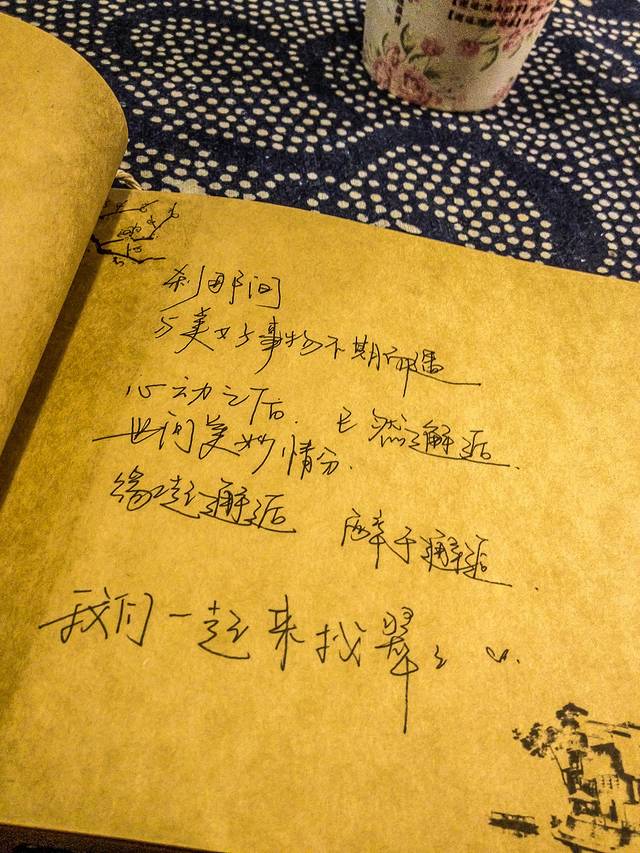 刹那间
与美好事物不期而遇
心动之后. 已然邂逅.
世间美妙情分.
缘起邂逅 幸于邂逅.
我们一起来找翠